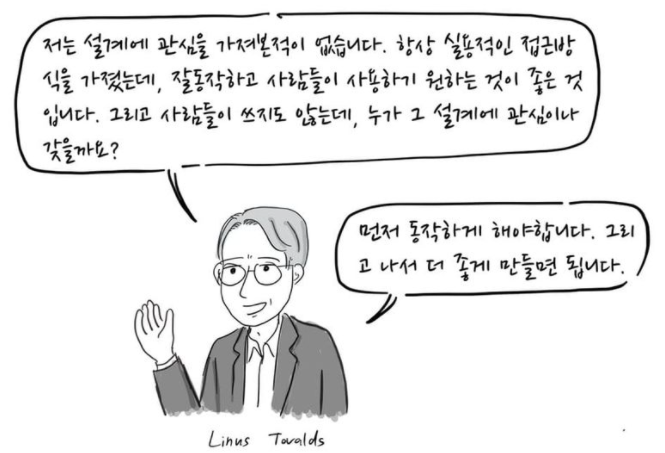 저는 설계에 관심을 가져본적이 없습니다. 항상 실용적인 접근방
식을 가졌는데, 잘동작하고 사람들이 사용하기 원하는 것이 좋은 것
입니다. 그리고 사람들이 쓰지도 않는데, 누가 그 설계에 관심이나
갖을까요?
먼저 동작하게 해야합니다. 그리
고 나서 더 좋게 만들면 됩니다.
Linus Tovalds